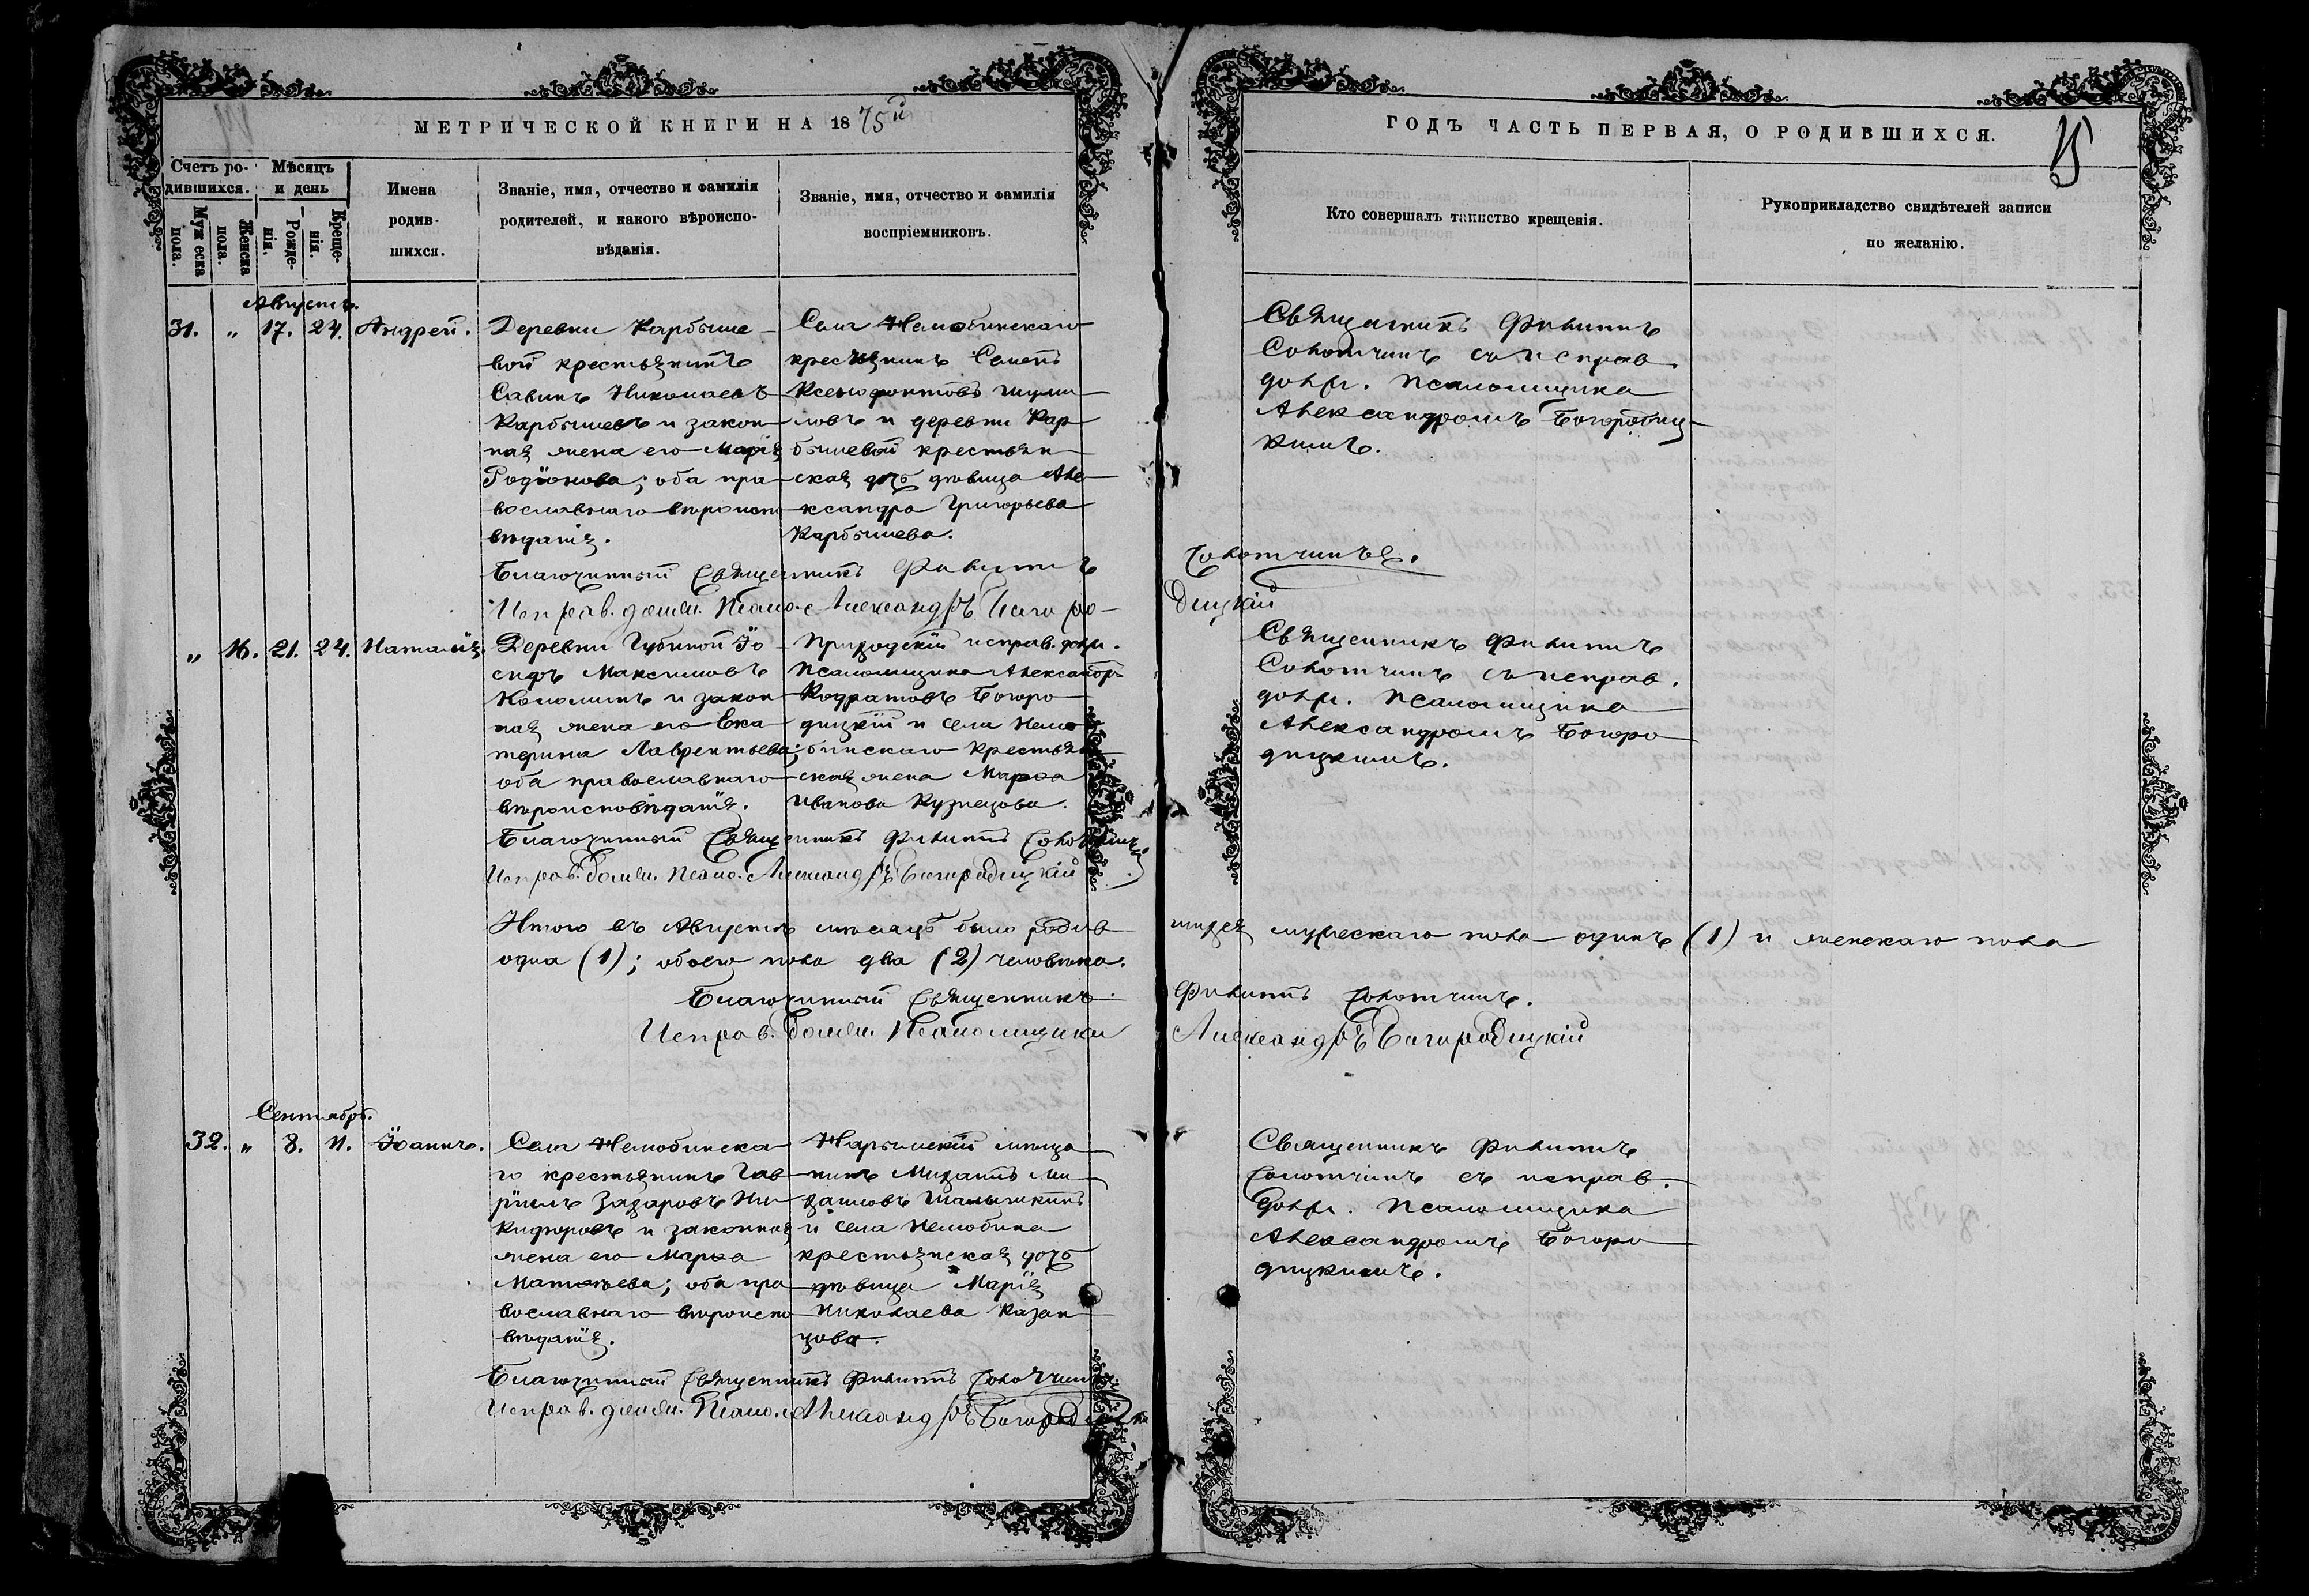 МЕТРИЧЕСКОЙ КНИГИ НА 1875й
ГОДЪ ЧАСТЬ ПЕРВАЯ, О РОДИВШИХСЯ.
15
Счетъ ро-
дившихся.
Мужеска
пола.
Женска
пола.
Мѣсяцъ
и день
Рожде-
нія.
Креще-
нія.
Имена
родив-
шихся.
Званіе, имя, отчество и фамилія
родителей, и какого вѣроиспо-
вѣданія.
Званіе, имя, отчество и фамилія
воспріемниковъ.
Кто совершалъ таинство крещенія.
Рукоприкладство свидѣтелей записи
по желанію.
Августъ.
31. „ 17. 24. Андрей.
Деревни Карбыше-
вой крестьянинъ
Савинъ Николаевъ
Карбышевъ и закон-
ная жена его Марія
Родіонова; оба пра-
вославнаго вѣроиспо
вѣданія.
Села Нелюбинскаго
крестьянинъ Семенъ
Ксенофонтовъ Шуми-
ловъ и деревни Кар
бышевой крестьян-
ская дочь дѣвица Але-
ксандра Григорьева
Карбышева.
Священникъ Филиппъ
Сокотчинъ съ исправ.
долж. псаломщика
Александромъ Богородиц-
кимъ.
Благочинный Священникъ Филиппъ Сокотчинъ.
Исправ. должн. Псало. Александръ Богоро-
дицкій
„ 16. 21. 24. Наталія.
Деревни Губиной Іо-
сифъ Максимовъ
Коломинъ и закон-
ная жена его Ека-
терина Лаврентьева;
оба православнаго
вѣроисповѣданія.
Приходскій исправ. долж.
псаломщика Александръ
Кодратовъ Богоро-
дицкій и села Нелю-
бинскаго крестьян
ская жена Марѳа
Иванова Кузнецова.
Священникъ Филиппъ
Сокотчинъ съ исправ.
долж. псаломщика
Александромъ Богоро-
дицкимъ.
Благочинный Священникъ Филиппъ Сокотчинъ
Исправ. должн. Псало. Александръ Богородицкій
Итого въ Августѣ мѣсяцѣ было родив-
шихся мужескаго пола одинъ (1) и женскаго пола
одна (1); обоего пола два (2) человѣка.
Благочинный Священникъ Филиппъ Сокотчинъ.
Исправ. должн. Псаломщика Александръ Богородицкій
Сентябрь.
32. „ 8. 11. Іоаннъ.
Села Нелюбинска-
го крестьянинъ Гав-
ріилъ Захаровъ Ни-
кифоровъ и законная
жена его Марѳа
Матвѣева; оба пра-
вославнаго вѣроиспо-
вѣданія.
Нарымскій мѣща-
нинъ Михаилъ Ми-
хаиловъ
и села Нелюбина
крестьянская дочь
дѣвица Марія
Николаева Казан-
цова.
Священникъ Филиппъ
Сокотчинъ съ исправ.
долж. псаломщика
Александромъ Богоро-
дицкимъ.
Благочинный Священникъ Филиппъ Сокотчинъ.
Исправ. должн. Псало. Александръ